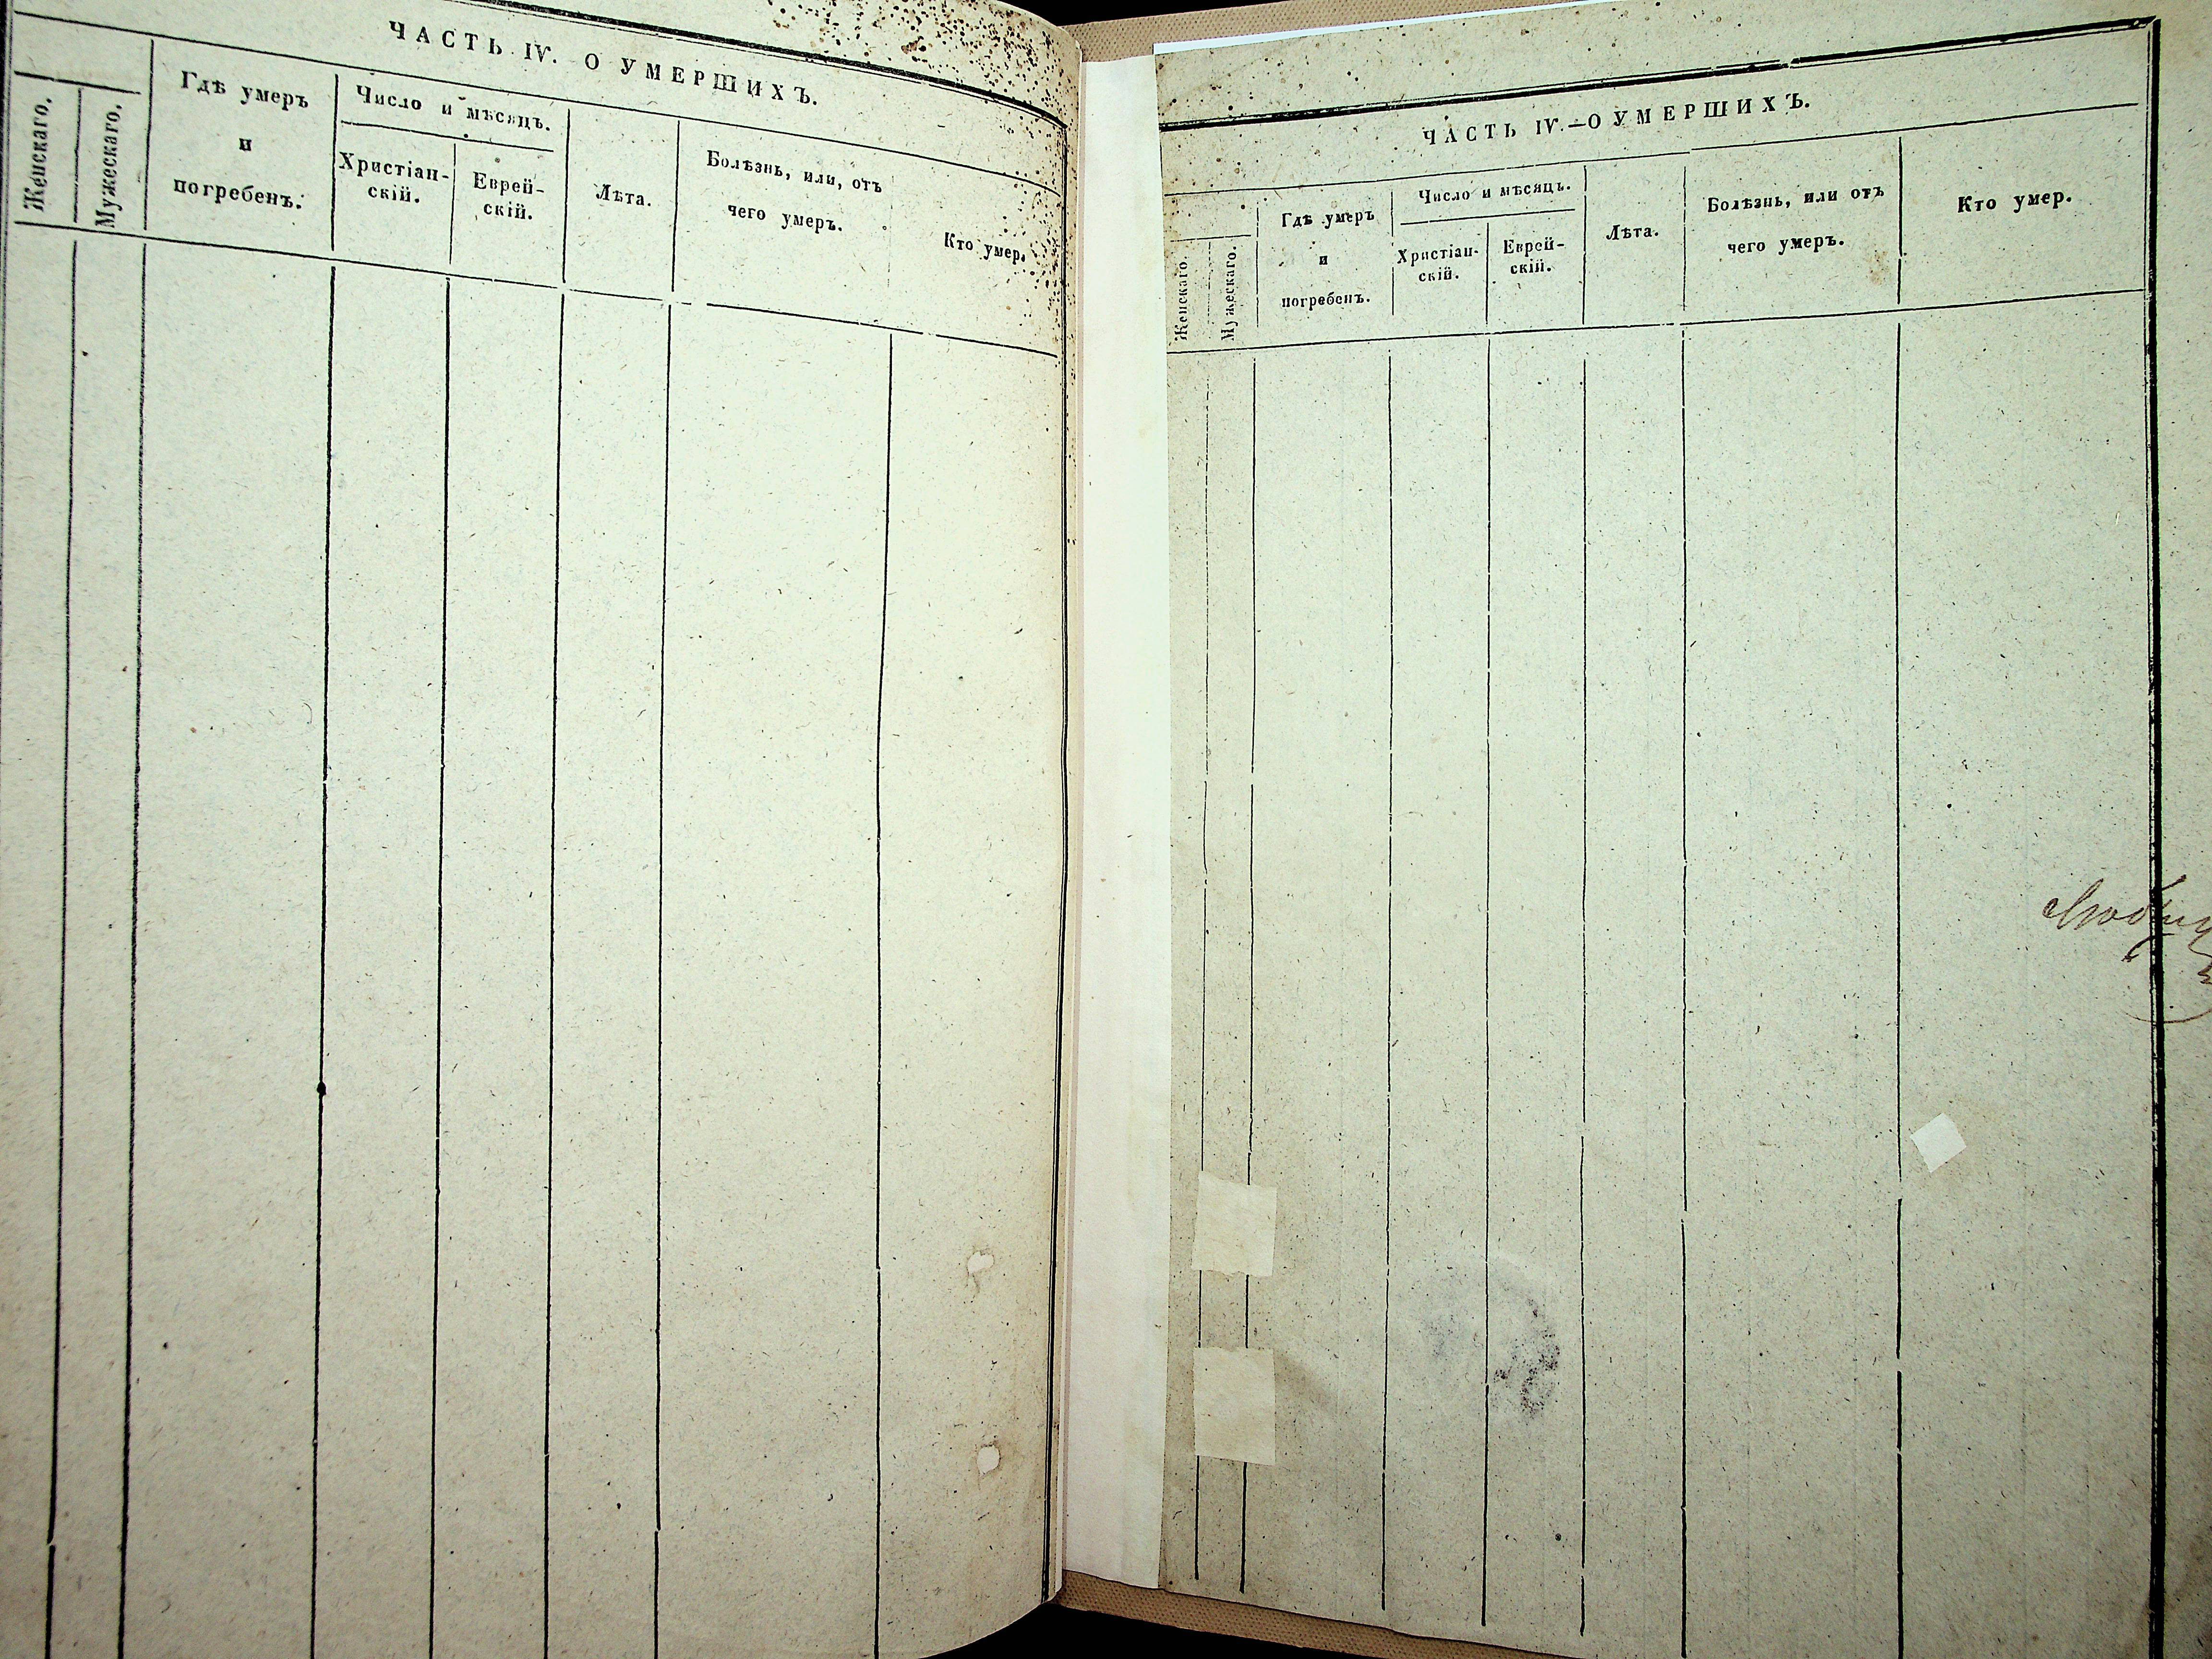 ЧАСТЬ IV. О УМЕРШИХЪ.
Женскаго.
Мужескаго.
Гдѣ умеръ
и
погребенъ.
Число и мѣсяцъ.
Христіан-
скій.
Еврей-
скій.
Лѣта.
Болѣзнь, или, отъ
чего умеръ.
Кто умер.
ЧАСТЬ IV.—О УМЕРШИХЪ.
Женскаго.
Мужескаго.
Гдѣ умеръ
и
погребенъ.
Число и мѣсяцъ.
Христіан-
скій.
Еврей-
скій.
Лѣта.
Болѣзнь, или отъ
чего умеръ.
Кто умер.